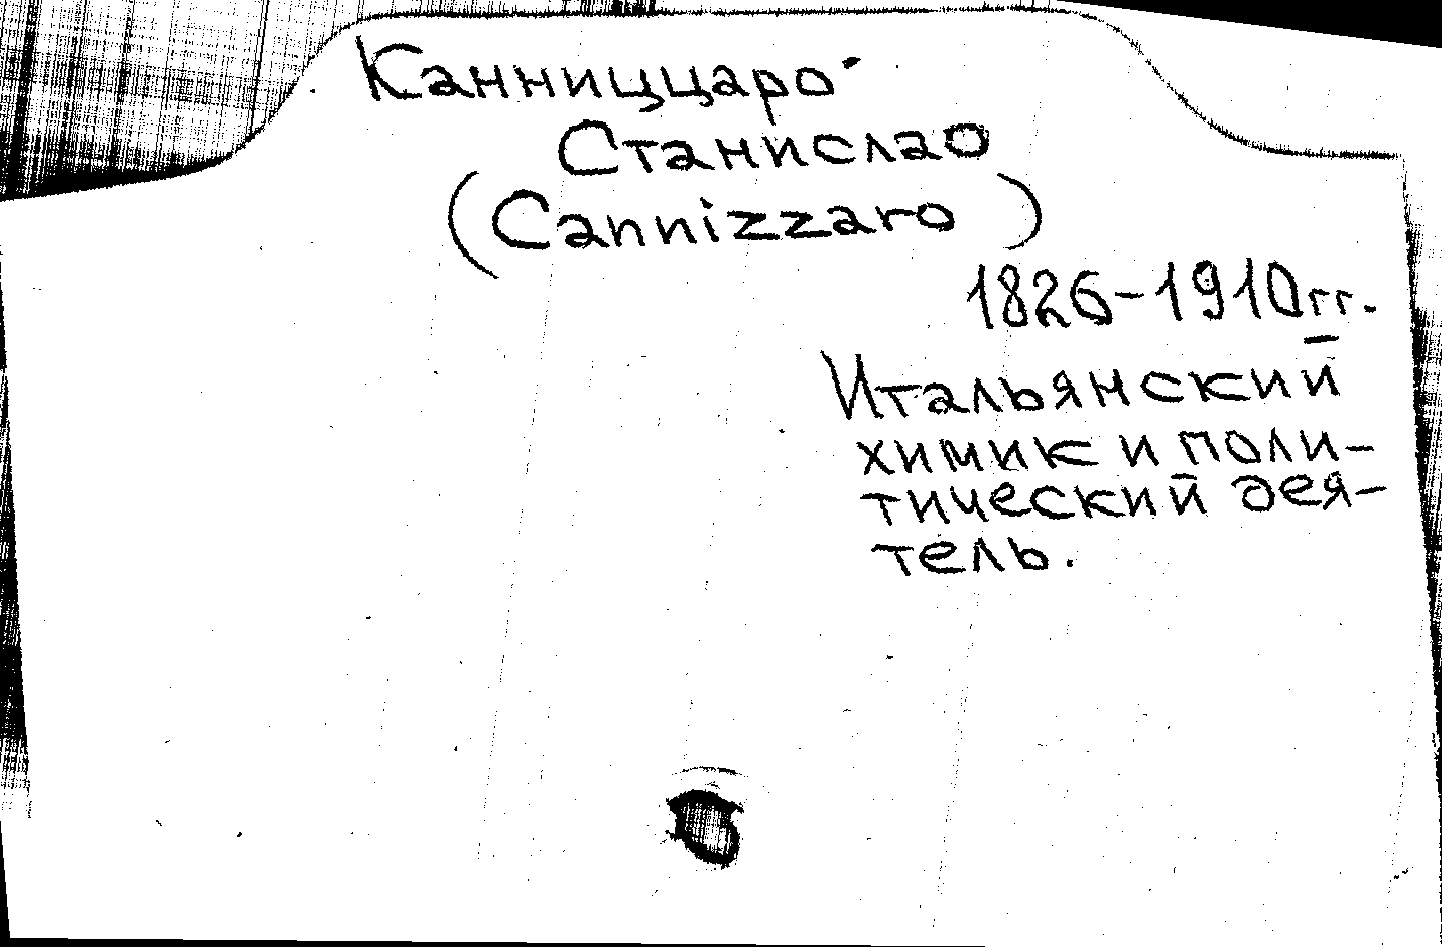 Канниццаро
Станислао
(Cannizzaro)
1826-1910гг.
Итальянский
химик и поли-
тический дея-
тель.